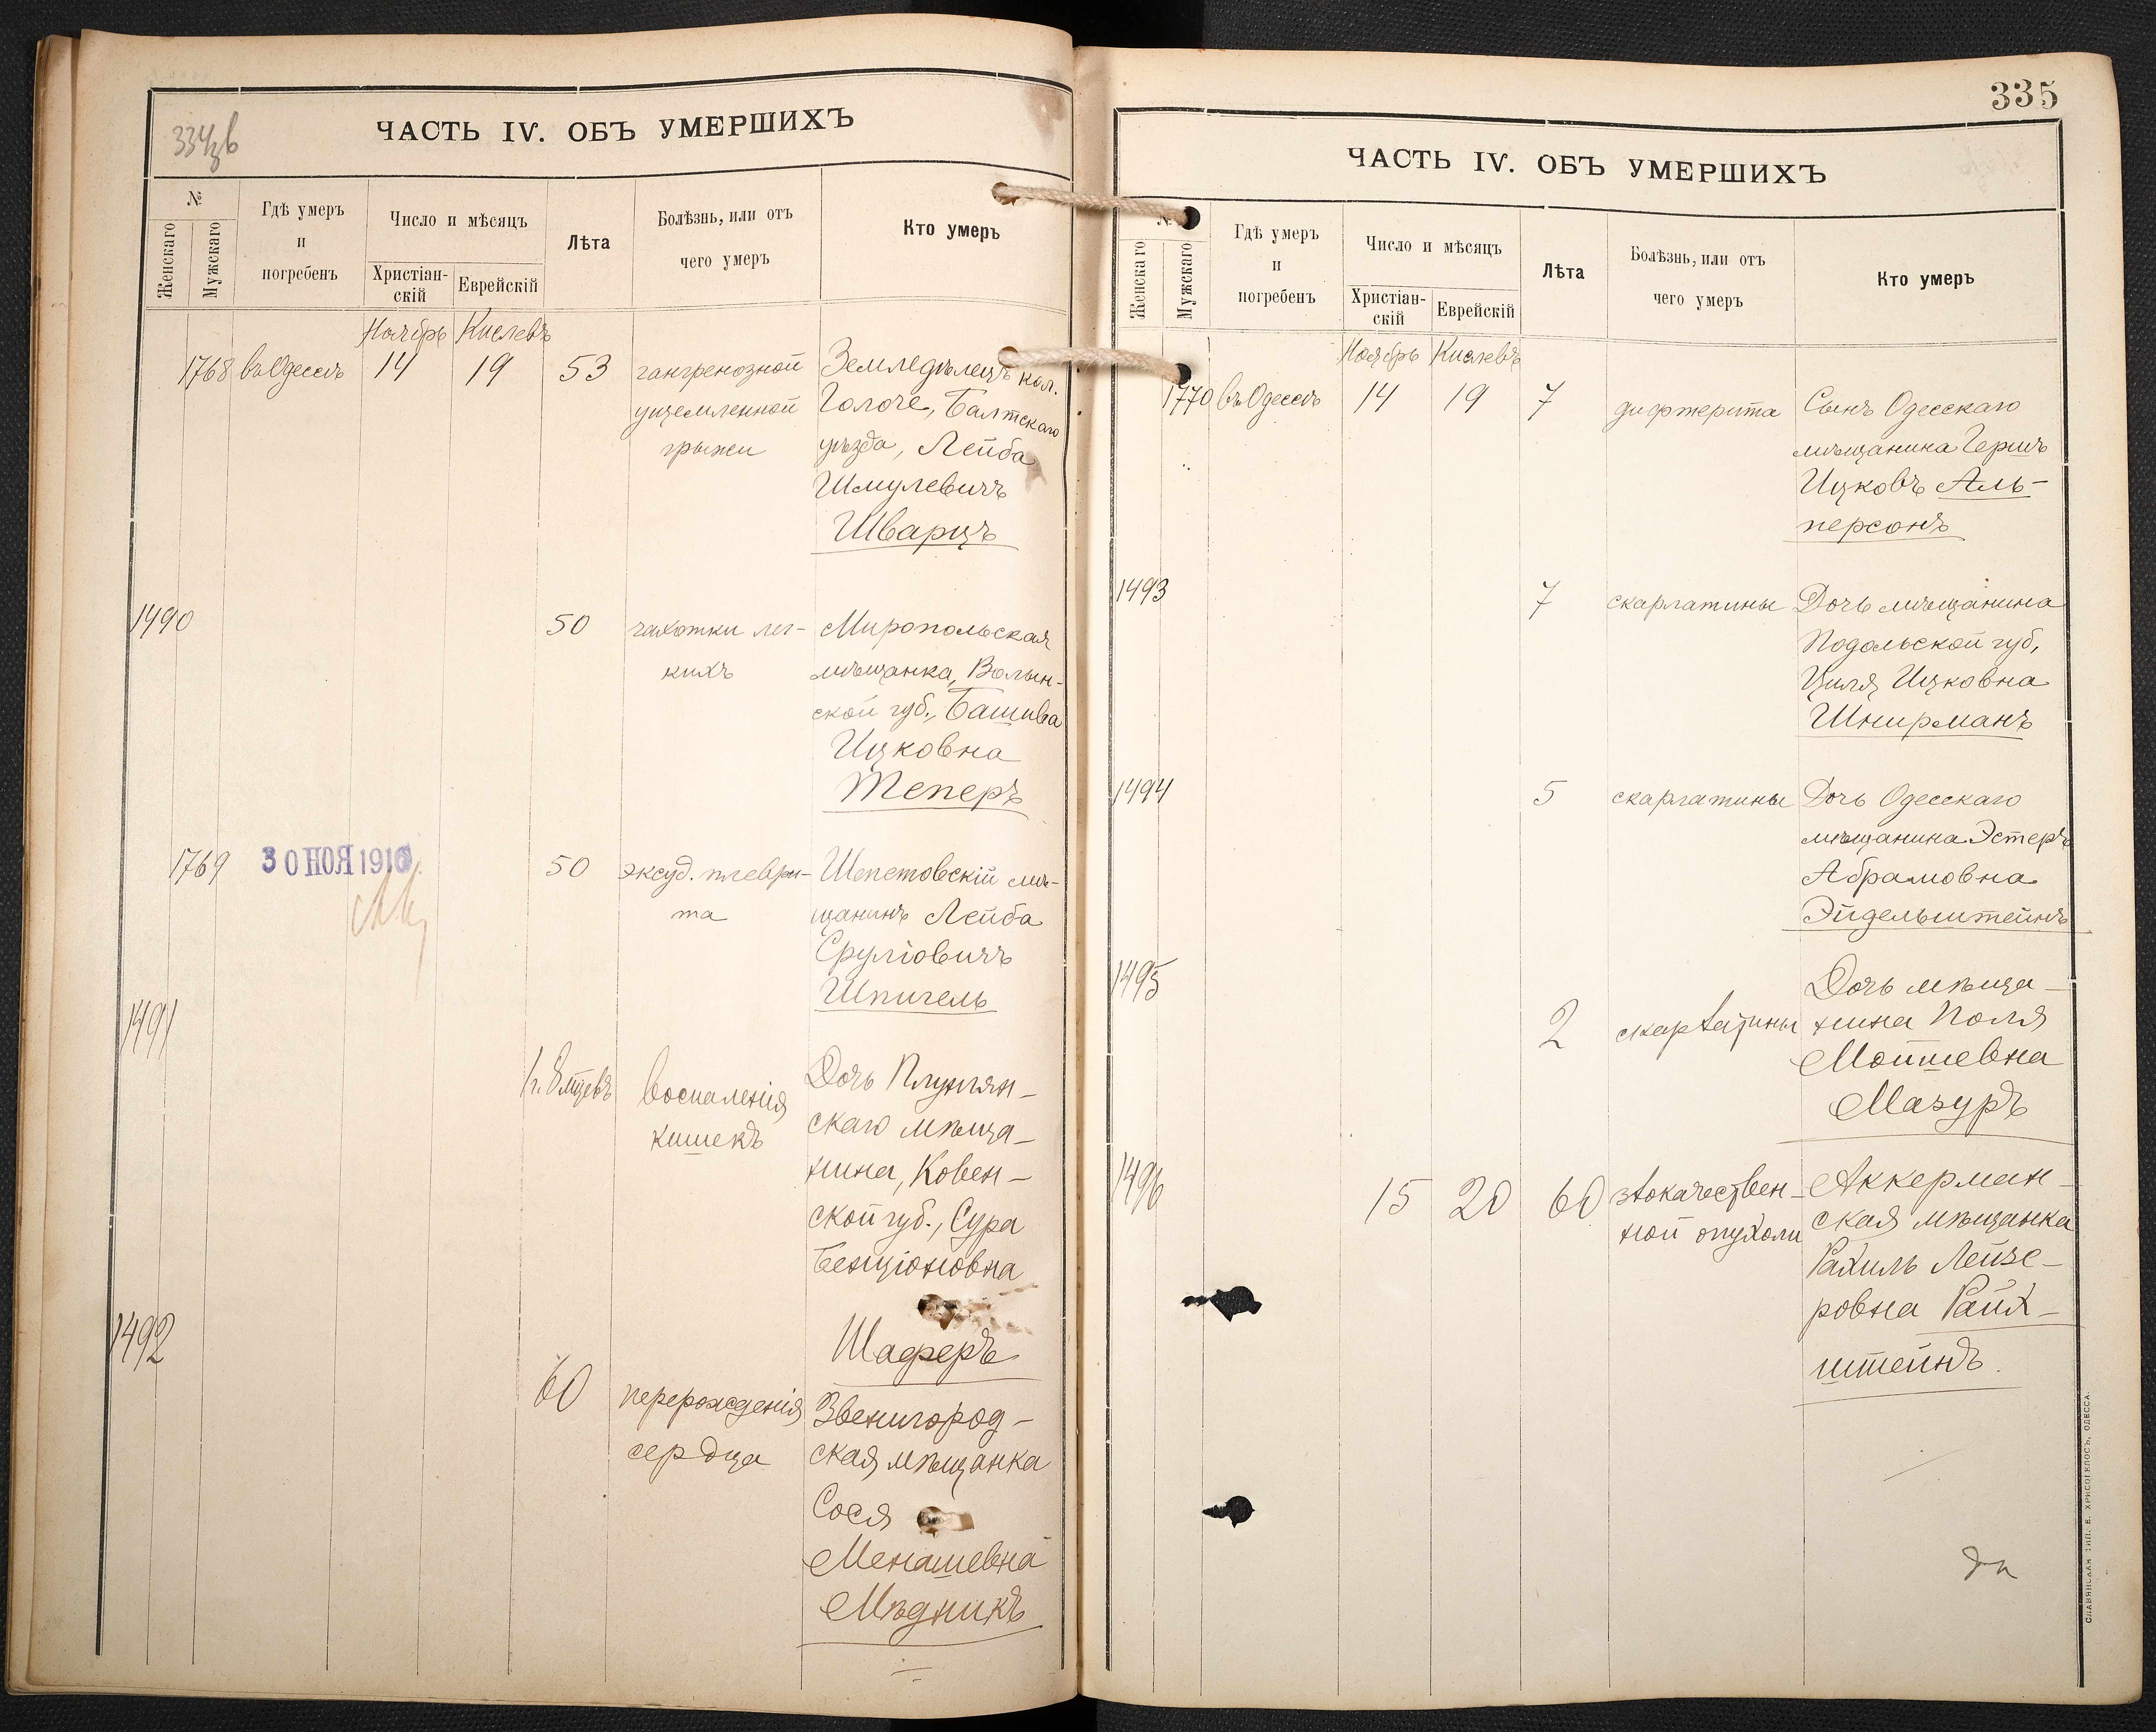 334об
ЧАСТЬ IV. ОБЪ УМЕРШИХЪ
№
Женскаго
Мужскаго
Гдѣ умеръ
и
погребенъ
Число и мѣсяцъ
Христіан-
скій
Еврейскій
Лѣта
Болѣзнь, или отъ
чего умеръ
Кто умеръ
Ноябрь Кислевъ
1768 въ Одессѣ 14 19 53 гангренозной Земледѣлецъ кол.
ущемленной Голоче, Балтскаго
грыжи уѣзда, Лейба
Шмулевичъ
Шварцъ
1490 50 чахотки лег- Миропольская
кихъ мѣщанка, Волын-
ской губ., Башива
Ицковна
Теперъ
1769 30 НОЯ 1916 50 эксуд. плеври- Шепетовскій мѣ-
та щанинъ Лейба
Сруліовичъ
Шпигель
1491
1 г. 8 мѣцевъ воспаленія Дочь Плунгян-
кишекъ скаго мѣща-
нина, Ковен-
ской губ., Сура
Бенціоновна
Шаферъ
1492
60 перерожденія Звенигород-
сердца ская мѣщанка
Сося
Менашевна
Мѣдникъ
335
ЧАСТЬ IV. ОБЪ УМЕРШИХЪ
№
Женскаго
Мужскаго
Гдѣ умеръ
и
погребенъ
Число и мѣсяцъ
Христіан-
скій
Еврейскій
Лѣта
Болѣзнь, или отъ
чего умеръ
Кто умеръ
Ноябрь Кислевъ
1770 въ Одессѣ 14 19 7 дифтерита Сынъ Одесскаго
мѣщанина Гершъ
Ицковъ Аль-
персонъ
1493 7 скарлатины Дочь мѣщанина
Подольской губ,
Циля Ицковна
Шнирманъ
1494 5 скарлатины Дочь Одесскаго
мѣщанина Эстеръ
Абрамовна
Эйдельштейнъ
1495 Дочь мѣща-
2 скарлатины нина Поля
Мошевна
Мазуръ
1496 15 20 60 злокачествен- Аккерман-
ной опухоли ская мѣщанка
Рахиль Лейзе-
ровна Райх-
штейнъ.
СЛАВЯНСКАЯ ТИП. Е. ХРИСОГЕЛОСЪ, ОДЕССА.